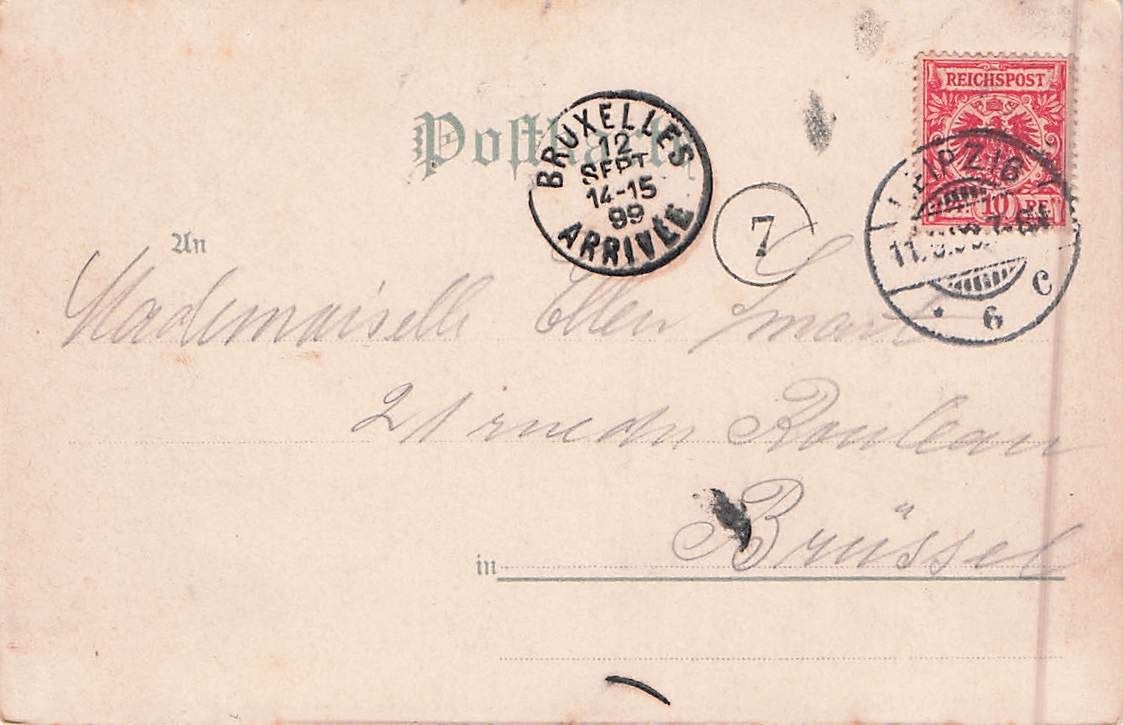 REICHSPOST
10
Postkarte
BRUXELLES
12
SEPT
14-15
99
ARRIVÉE
7
LEIPZIG
11.
6
C
An
Mademoiselle Ellen Smart
21 rue du Rouleau
in Brüssel